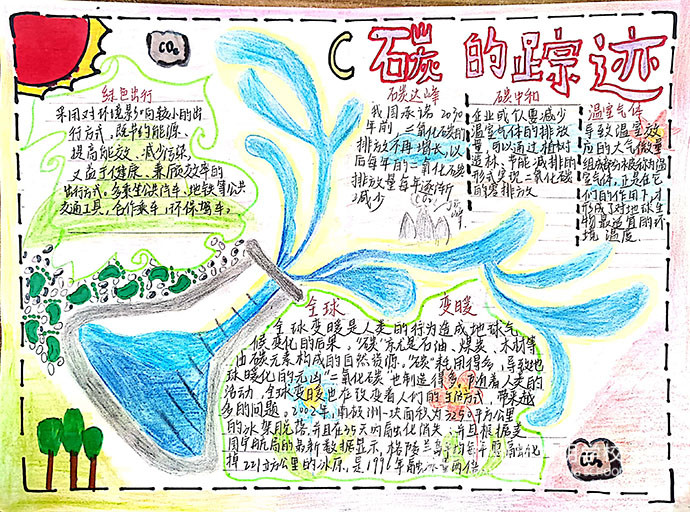 C 石碳的踪迹
CO₂
绿色出行
采用对环境影响较小的出
行方式，既节约能源、
提高能效、减少污染，
又益于健康、兼顾效率的
出行方式。多乘坐公共汽车、地铁等公共
交通工具，合作乘车，环保驾车。
石碳达峰
我国承诺2030
年前，二氧化碳的
排放不再增长，以
后每年的二氧化碳
排放量每年逐渐
减少
碳中和
企业或个人要减少
温室气体的排放
量，可以通过植树
造林、节能减排的
形式实现二氧化碳
的零排放
温室气体
导致温室效
应的大气微量
组成部分被称为温
室气体，正是在它
们的作用下，才
形成了对地球生
物最适宜的环
境温度
全球 变暖
全球变暖是人类的行为造成地球气
候变化的后果。"碳"就是石油、煤炭、木材等
由碳元素构成的自然资源。"碳"耗用得多，导致地
球暖化的元凶"二氧化碳"也制造得多。随着人类的
活动，全球变暖也在改变着人们的生活方式，带来越
多的问题。2002年，南极洲一块面积为3250平方公里
的冰架脱落，并且在35天内融化消失，并且根据美
国宇航局的最新数据显示，格陵兰岛
221立方公里的冰原，是1996年融冰